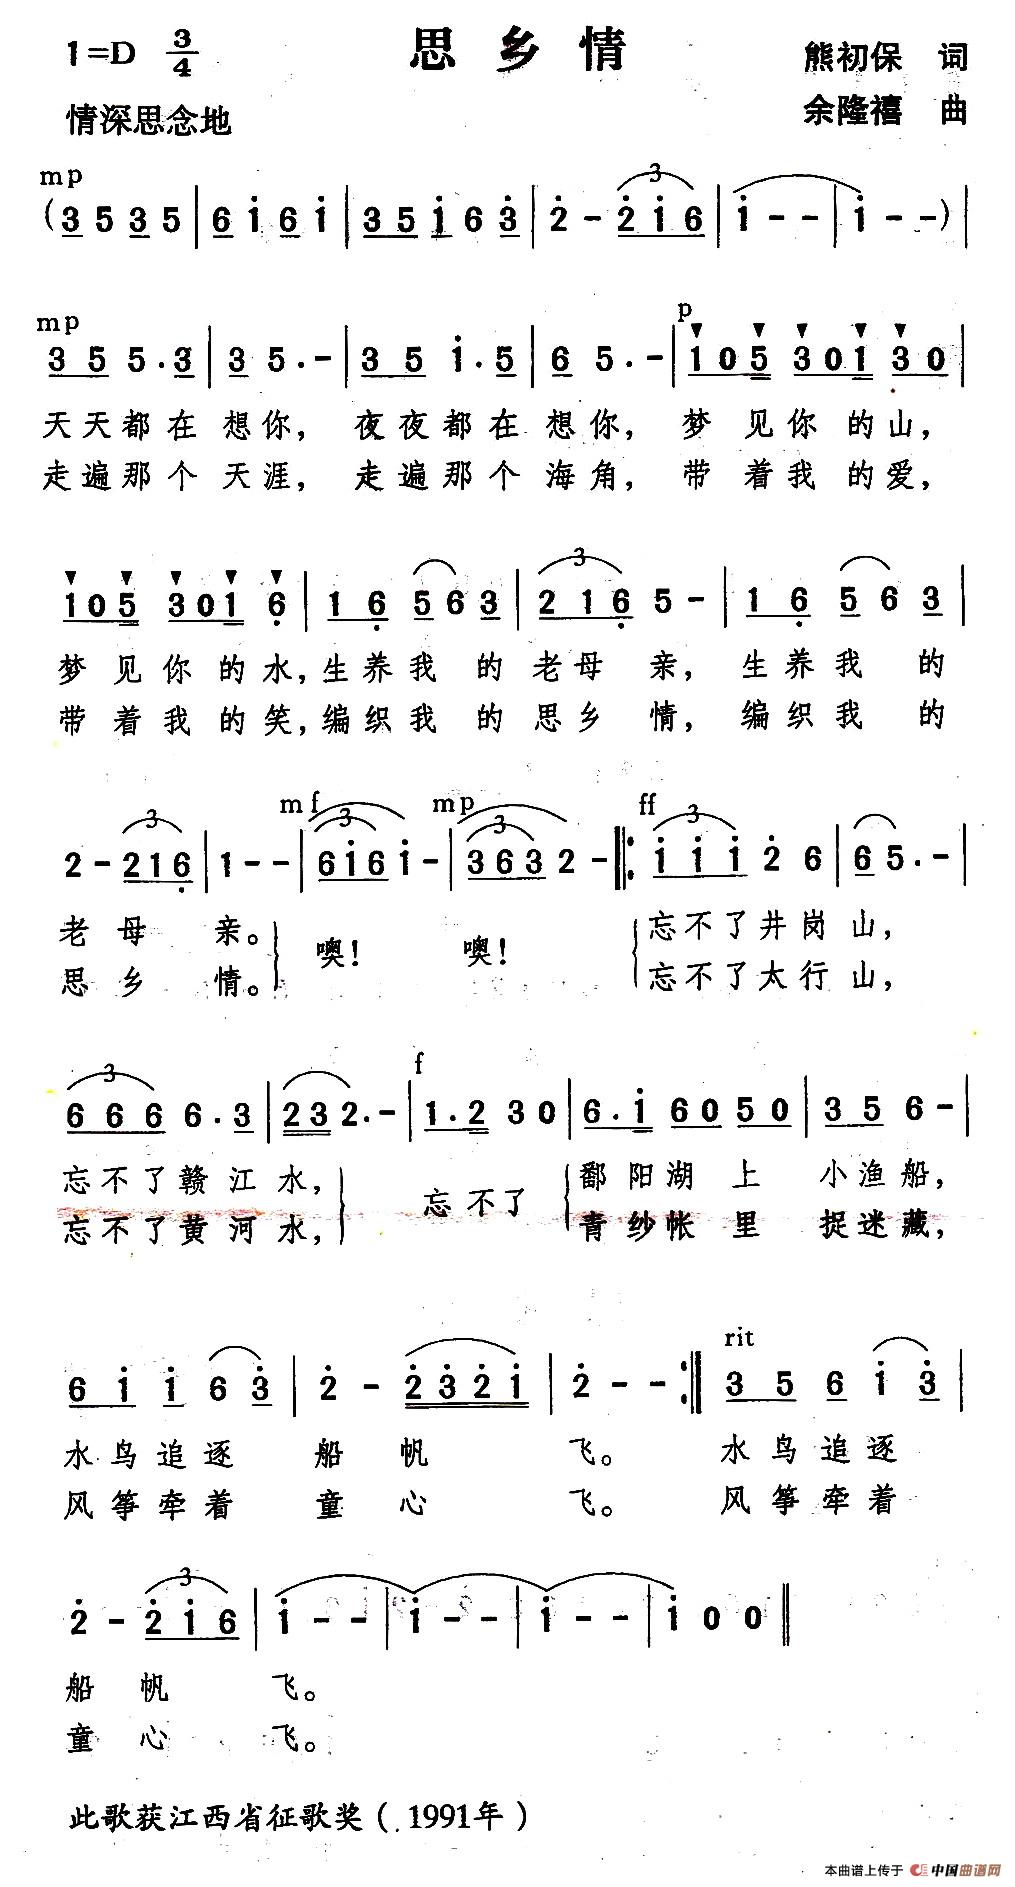 1=D 3/4 思乡情 熊初保 词
情深思念地 余隆禧 曲
mp
(3 5 3 5 | 6 i 6 i | 3 5 i 6 3 | 2 - 2 i 6 | i - - | i - -) |
mp p
3 5 5 . 3 | 3 5 . - | 3 5 i . 5 | 6 5 . - | 1 0 5 3 0 1 3 0 |
天天都在 想你， 夜夜都在 想你， 梦 见你 的山，
走遍那个 天涯， 走遍那个 海角， 带 着我 的爱，
1 0 5 3 0 1 6 | 1 6 5 6 3 | 2 1 6 5 - | 1 6 5 6 3 |
梦 见你 的水，生养我 的 老母 亲， 生养我 的
带 着我 的笑，编织我 的 思乡 情， 编织我 的
mf mp ff
2 - 2 1 6 | 1 - - | 6 i 6 i - | 3 6 3 2 - |: i i i 2 6 | 6 5 . - |
老 母 亲。 噢！ 噢！ 忘不了井岗 山，
思 乡 情。 忘不了太行 山，
f
6 6 6 6 . 3 | 2 3 2 . - | 1 . 2 3 0 | 6 . i 6 0 5 0 | 3 5 6 - |
忘不了赣 江 水， 忘 不了 鄱 阳湖 上 小渔船，
忘不了黄 河 水， 青 纱帐 里 捉迷藏，
rit
6 i i 6 3 | 2 - 2 3 2 i | 2 - - :| 3 5 6 i 3 |
水 鸟 追 逐 船 帆 飞。 水 鸟 追 逐
风 筝 牵 着 童 心 飞。 风 筝 牵 着
2 - 2 i 6 | i - - | i - - | i - - | i 0 0 ‖
船 帆 飞。
童 心 飞。
此歌获江西省征歌奖（ 1991年）
本曲谱上传于 中国曲谱网